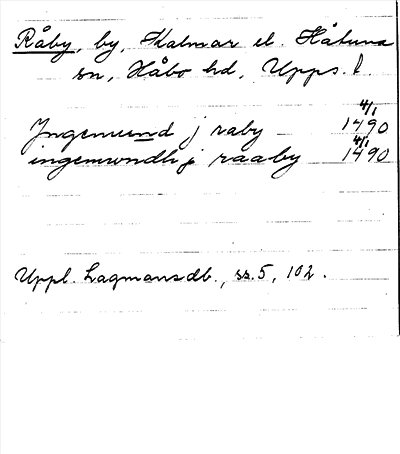 Råby, by, Kalmar el. Håtuna
sn, Håbo hd, Upps. l.
Jngemund j raby – 4/1 1490
ingemwndh j raaby 4/1 1490
Uppl. Lagmansdb., ss. 5, 102.